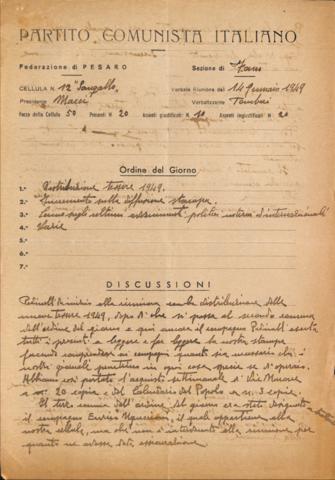 PARTITO COMUNISTA ITALIANO
Federazione di PESARO Sezione di Fano
CELLULA N. 12 "Sangallo" Verbale Riunione del 14 Gennaio 1949
Presidente Macci Verbalizzante Tamburi
Forza della Cellula 50 Presenti N. 20 Assenti giustificati N. 10 Assenti ingiustificati N. 20
Ordine del Giorno
1.- Distribuzione tessere 1949.
2.- Incremento sulla diffusione stampa.
3.- Cenno sugli ultimi avvenimenti politici interni ed internazionali
4.- Varie
5.-
6.-
7.-
DISCUSSIONI
alla riunione con la distribuzione delle
nuove tessere 1949, dopo di che si passa al secondo comma
dell'ordine del giorno e qui ancora il compagno esorta
tutti i presenti a leggere e far leggere la nostra stampa
facendo comprendere ai compagni quanto sia necessario che i
nostri giornali penetrino in ogni casa specie se d'operai.
Abbiamo così portato l'acquisto settimanale di Vie Nuove
a n. 20 copie e del Calendario del Popolo a n. 3 copie.
Al terzo comma dell'ordine del giorno era stato designato
il compagno Enrico il quale appartiene alla
nostra cellula, ma che non è intervenuto alla riunione per
quanto ne avesse data assicurazione.